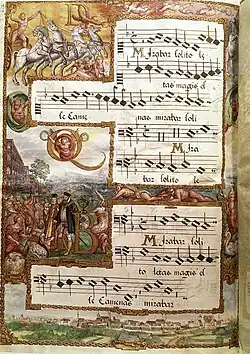 Mirabar solito le
tas magis el
le Came
nas mirabar soli
Mira
bar solito le
Mirabar soli
to letas magis el
le Camenas mirabar